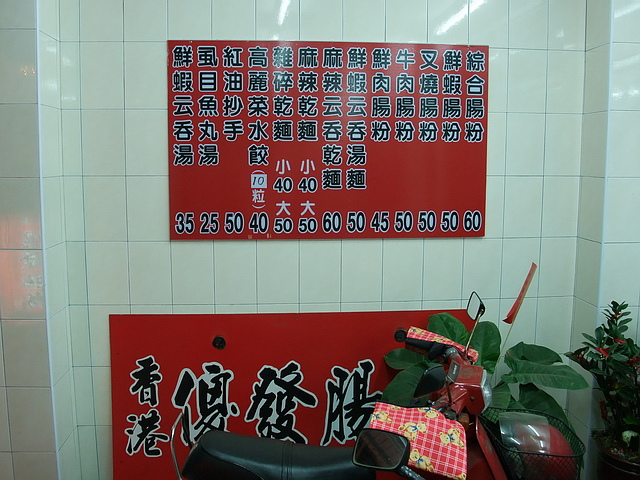 鮮蝦云吞湯 35
虱目魚丸湯 25
紅油抄手 50
高麗菜水餃(10粒) 40
雜碎乾麵 小40 大50
麻辣乾麵 小40 大50
麻辣云吞乾麵 60
鮮蝦云吞湯麵 50
鮮肉腸粉 45
牛肉腸粉 50
叉燒腸粉 50
鮮蝦腸粉 50
綜合腸粉 60
香港
傻發腸